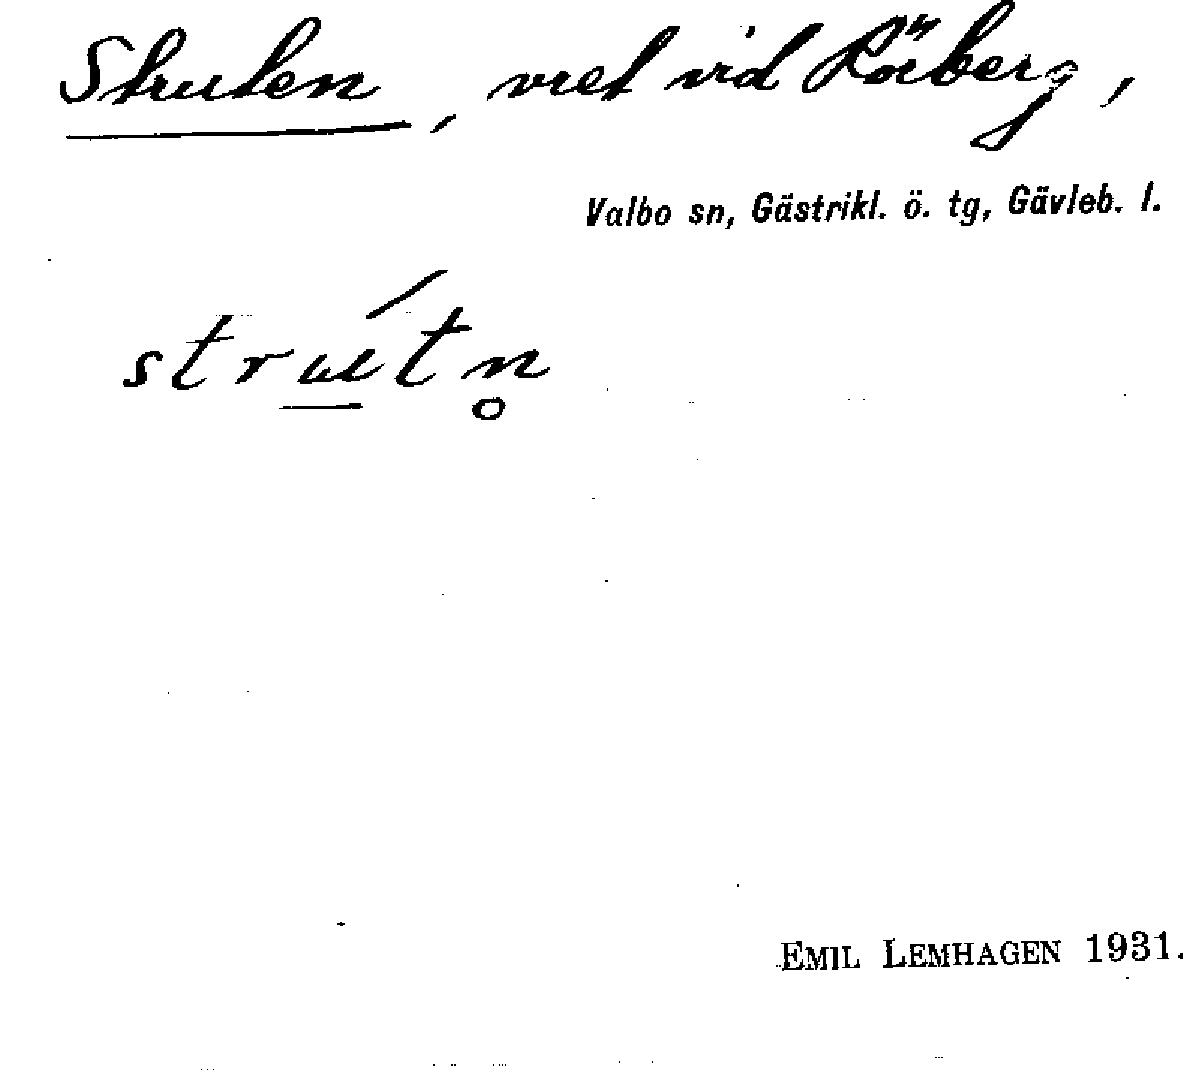 Struten, vret vid Rörberg,
Valbo sn, Gästrikl. ö. tg, Gävleb. l.
strṵ́tn̥
EMIL LEMHAGEN 1931.